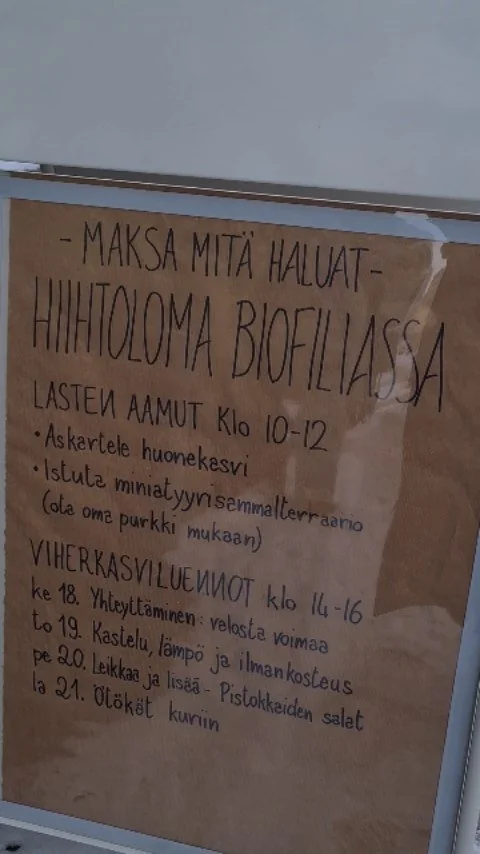 - MAKSA MITÄ HALUAT-
HIIHTOLOMA BIOFILIASSA
LASTEN AAMUT Klo 10-12
• Askartele huonekasvi
• Istuta miniatyyrisammalterraario
(ota oma purkki mukaan)
VIHERKASVILUENNOT klo 14-16
ke 18. Yhteyttäminen: valosta voimaa
to 19. Kastelu, lämpö ja ilmankosteus
pe 20. Leikkaa ja lisää - Pistokkaiden salat
la 21. Ötökät kuriin